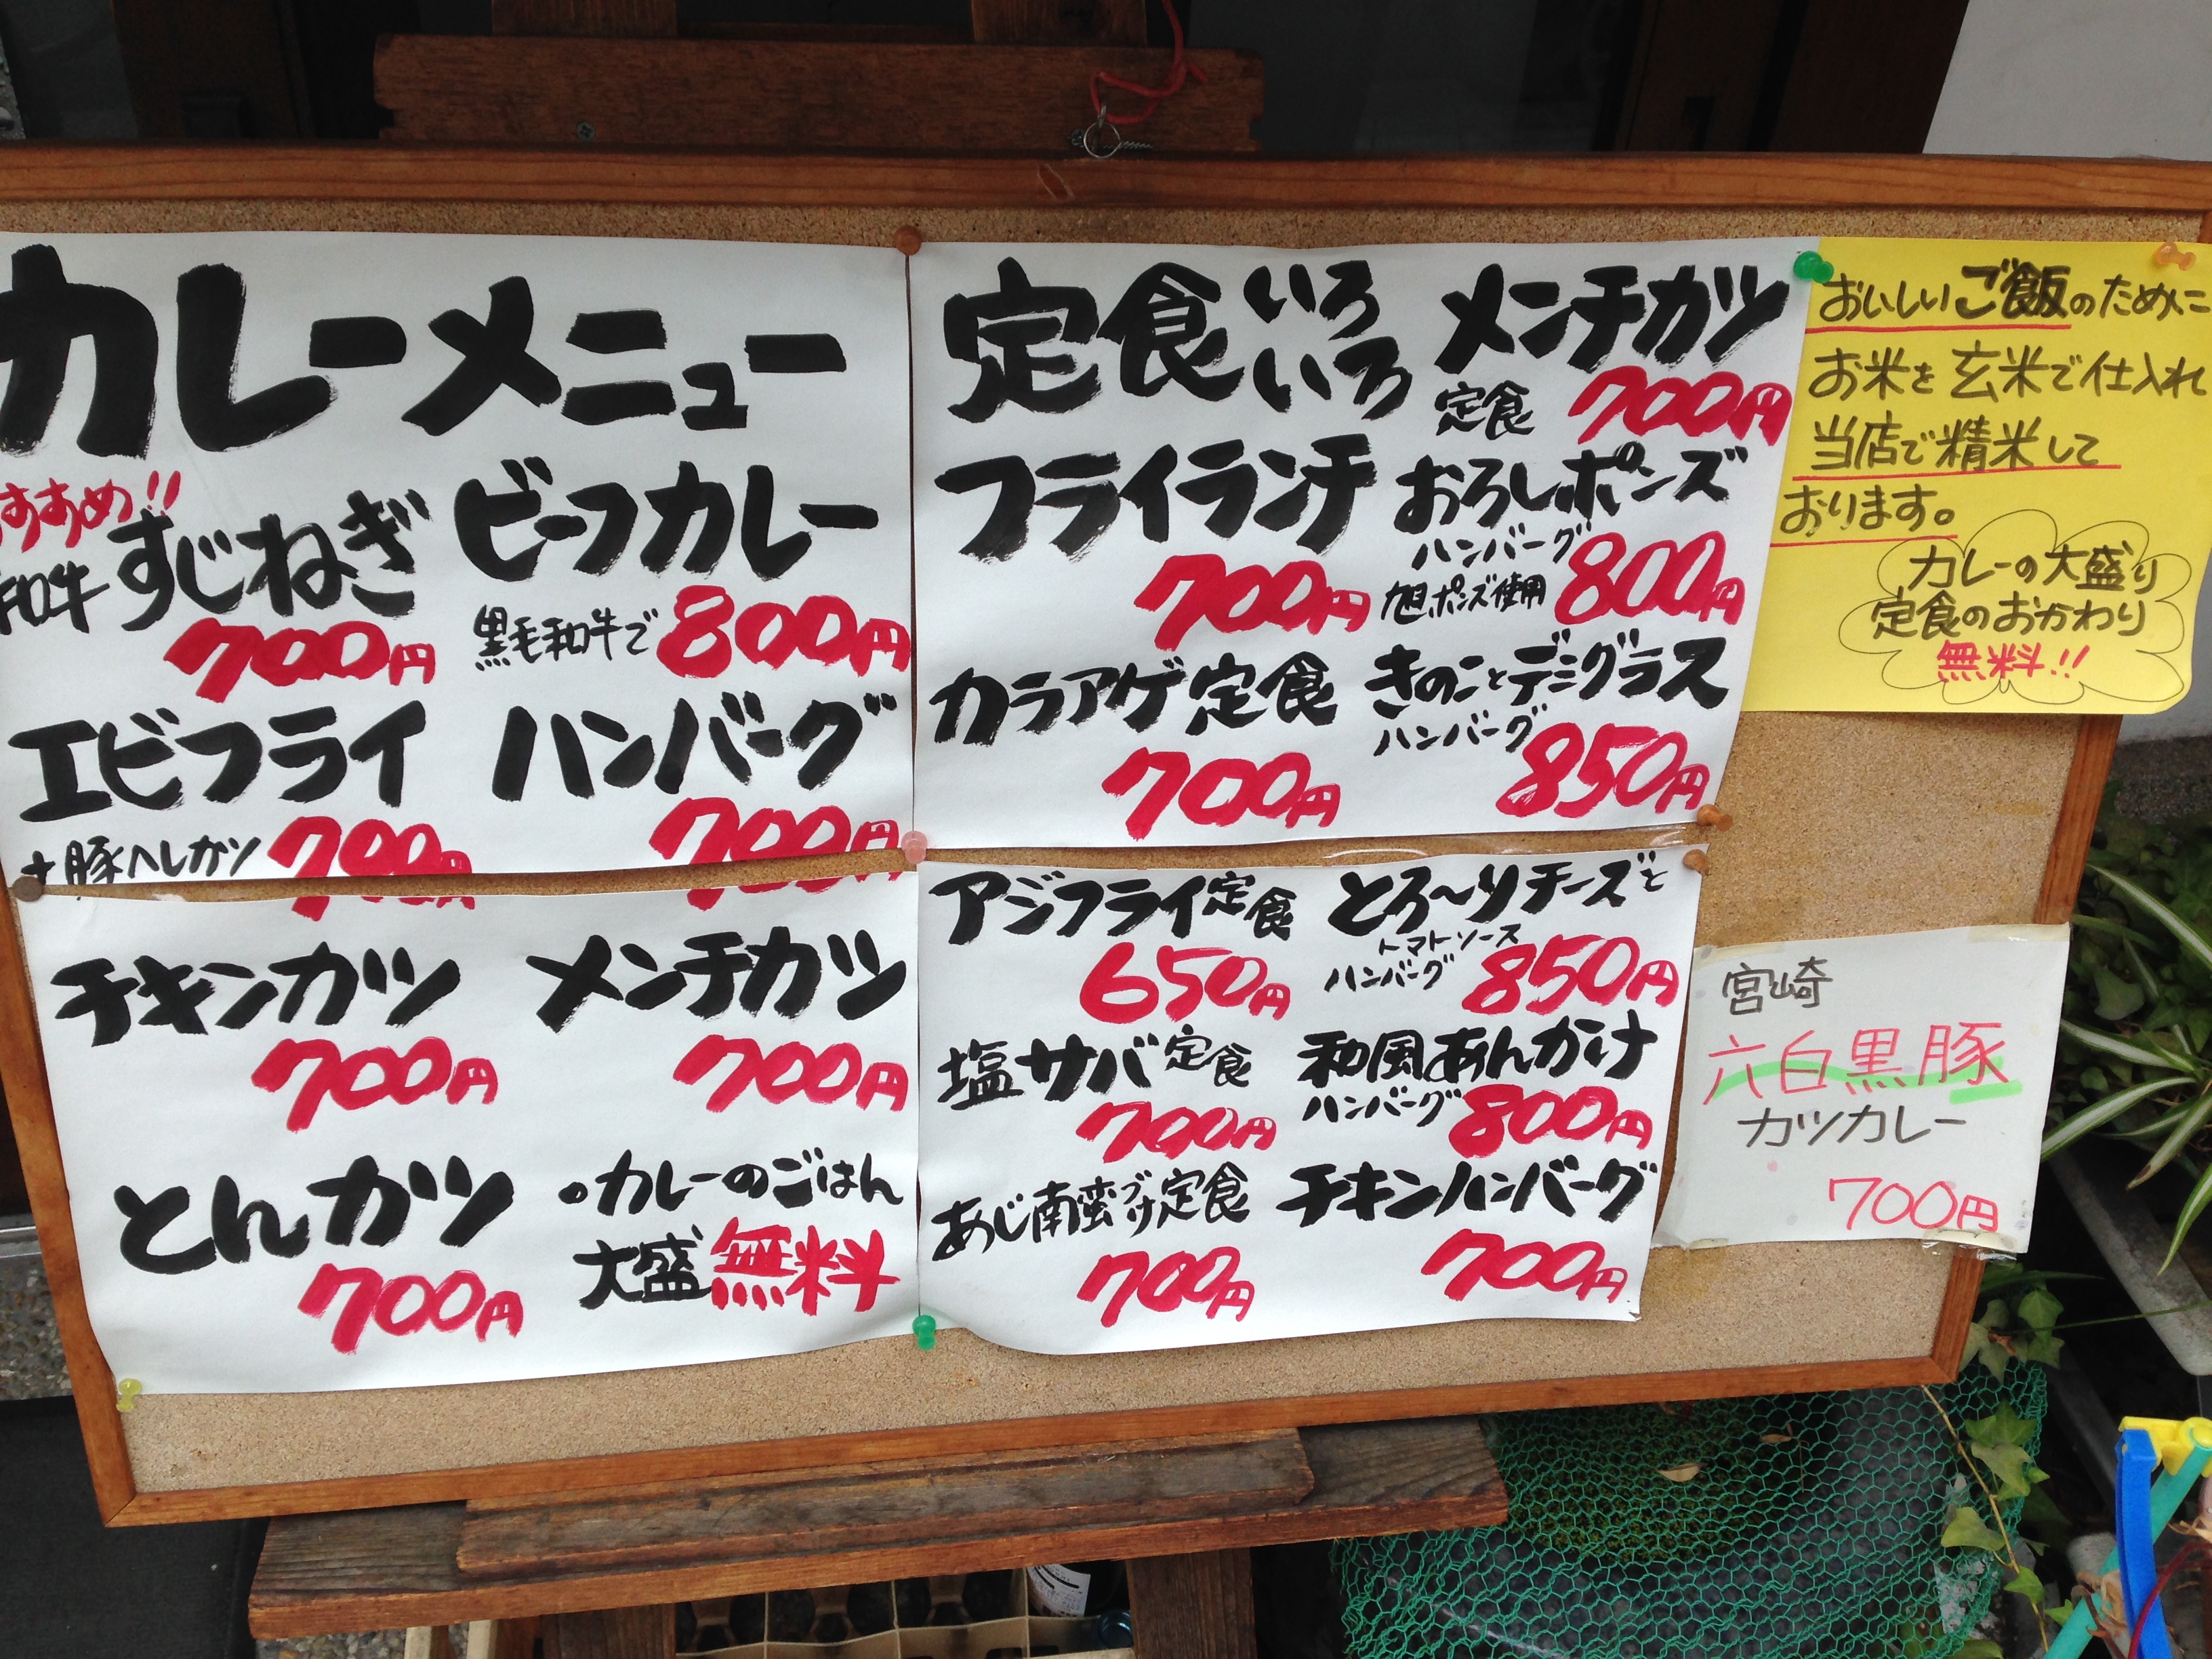 カレーメニュー
すすめ!!
和牛 すじねぎ
700円
ビーフカレー
黒毛和牛で 800円
エビフライ
+豚ヘレカツ 700円
ハンバーグ
700円
チキンカツ
700円
メンチカツ
700円
とんカツ
700円
・カレーのごはん
大盛無料
定食いろいろ
フライランチ
700円
カラアゲ定食
700円
メンチカツ
定食 700円
おろしポンズ
ハンバーグ
旭ポンズ使用 800円
きのことデミグラス
ハンバーグ
850円
アジフライ定食
650円
塩サバ定食
700円
あじ南蛮づけ定食
700円
とろ～りチーズと
トマトソース
ハンバーグ 850円
和風あんかけ
ハンバーグ 800円
チキンハンバーグ
700円
おいしいご飯のために
お米を玄米で仕入れ
当店で精米して
おります。
カレーの大盛り
定食のおかわり
無料!!
宮崎
六白黒豚
カツカレー
700円